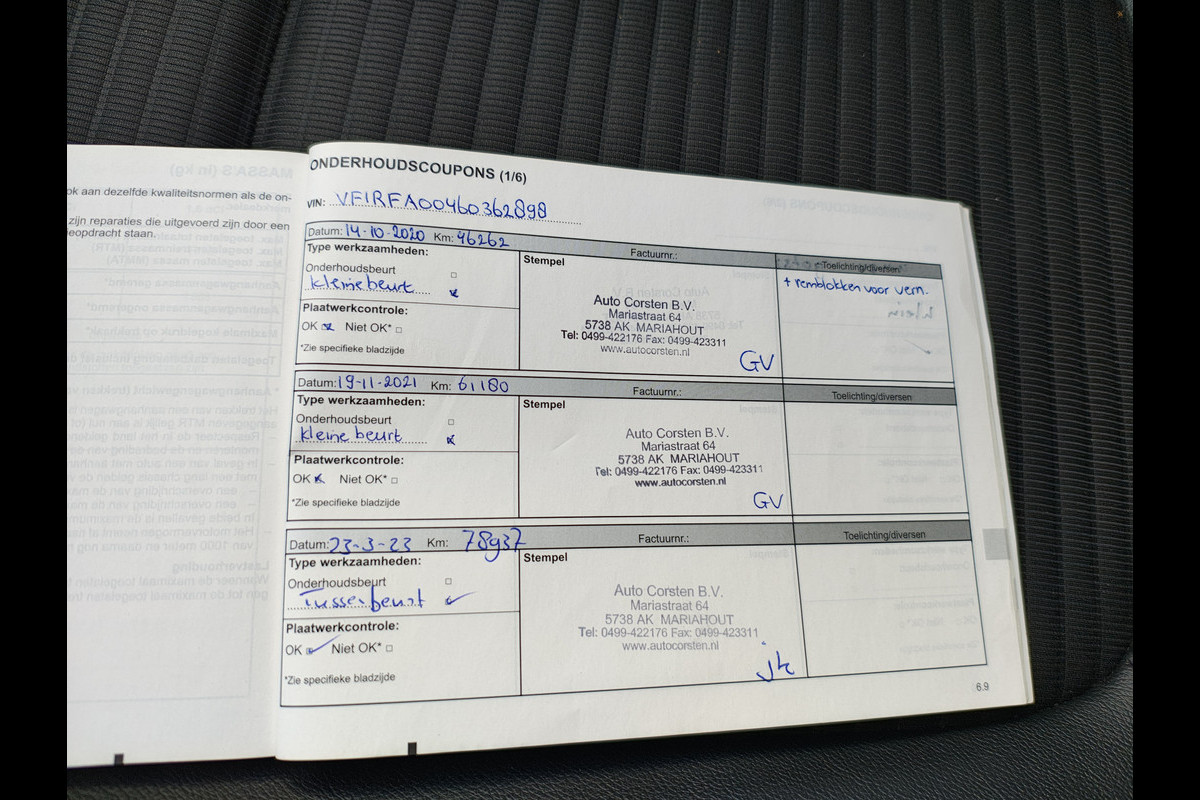 ok aan dezelfde kwaliteitsnormen als de on-
zijn reparaties die uitgevoerd zijn door een
eopdracht staan.
ONDERHOUDSCOUPONS (1/6)
VIN: VF1RFA00460362898
Datum: 14-10-2020 Km: 46262
Factuurnr.:
Toelichting/diversen
Type werkzaamheden:
Stempel
Onderhoudsbeurt
kleine beurt
+ remblokken voor vern.
Auto Corsten B.V.
Mariastraat 64
5738 AK MARIAHOUT
Tel: 0499-422176 Fax: 0499-423311
www.autocorsten.nl
GV
Plaatwerkcontrole:
OK Niet OK*
*Zie specifieke bladzijde
Datum: 19-11-2021 Km: 61180
Factuurnr.:
Toelichting/diversen
Type werkzaamheden:
Stempel
Onderhoudsbeurt
kleine beurt
Auto Corsten B.V.
Mariastraat 64
5738 AK MARIAHOUT
Tel: 0499-422176 Fax: 0499-423311
www.autocorsten.nl
GV
Plaatwerkcontrole:
OK Niet OK*
*Zie specifieke bladzijde
Datum: 23-3-23 Km: 78937
Factuurnr.:
Toelichting/diversen
Type werkzaamheden:
Stempel
Onderhoudsbeurt
Tussenbeurt
Auto Corsten B.V.
Mariastraat 64
5738 AK MARIAHOUT
Tel: 0499-422176 Fax: 0499-423311
www.autocorsten.nl
jk
Plaatwerkcontrole:
OK Niet OK*
*Zie specifieke bladzijde
6.9